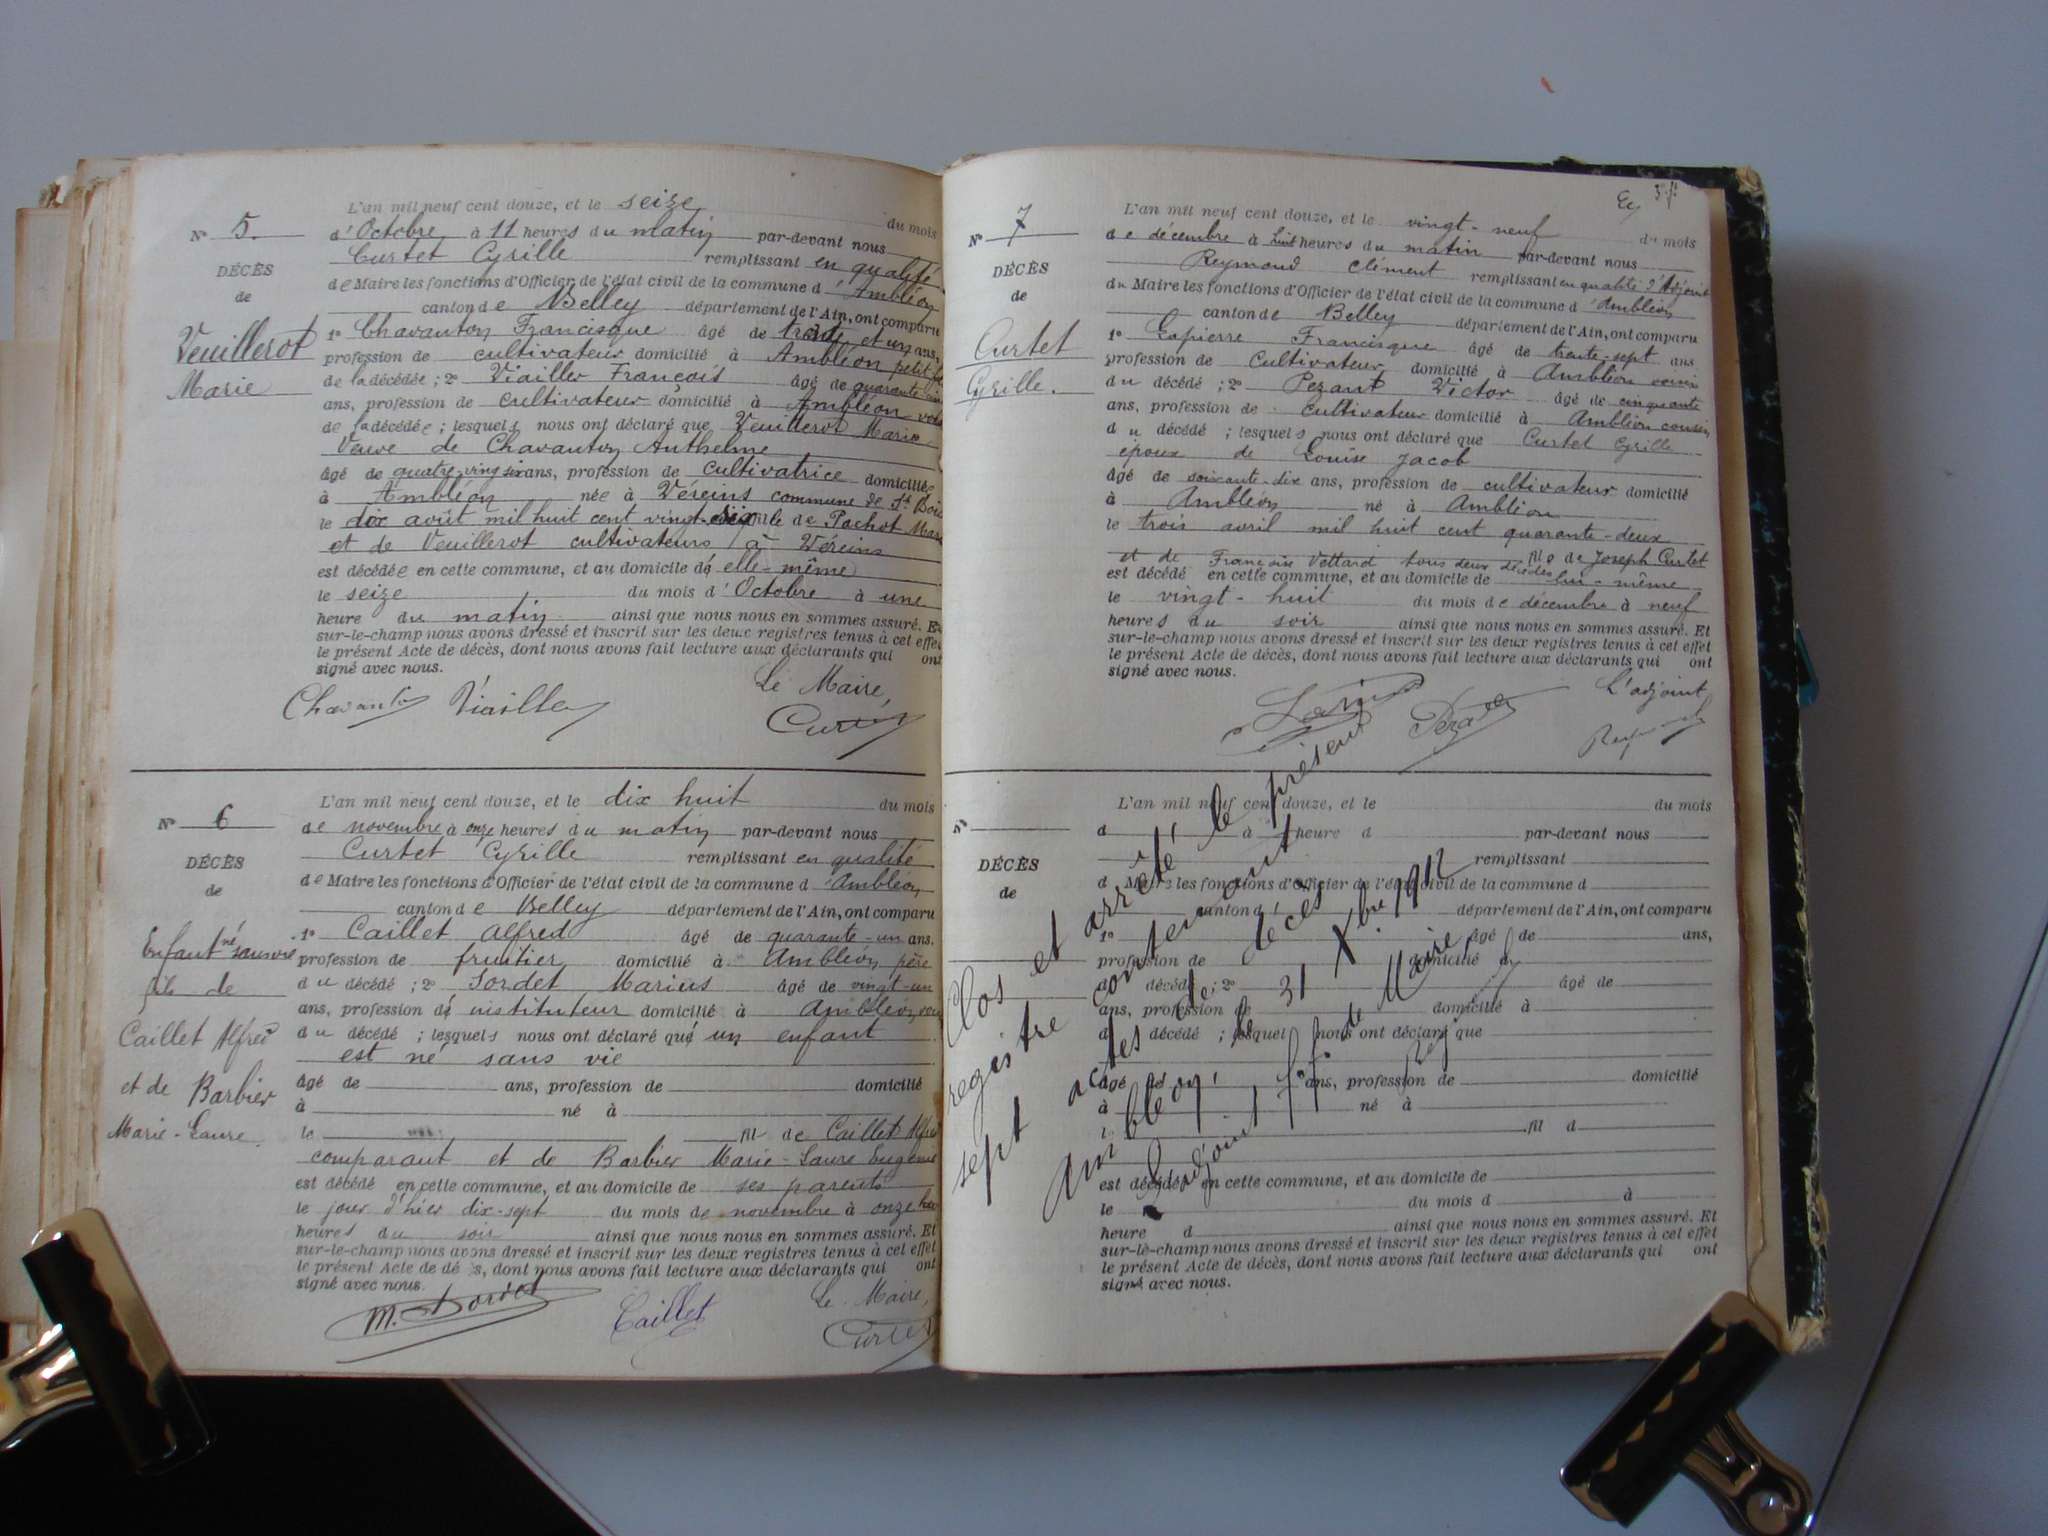 L'an mil neuf cent douze, et le seize du mois
N° 5. d'Octobre à 11 heures du matin par-devant nous
Curtet Cyrille remplissant en qualité
DÉCÈS
de Maire les fonctions d'Officier de l'état civil de la commune d'Ambléon
de
canton de Belley département de l'Ain, ont comparu
Veuillerot
1° Chavanton Francisque âgé de trente et un ans,
profession de cultivateur domicilié à Ambléon petit
Marie
de la décédée ; 2° Viailler François âgé de quarante
ans, profession de cultivateur domicilié à Ambléon
de la décédée ; lesquels nous ont déclaré que Veuillerot Marie
Veuve de Chavanton Anthelme
âgé de quatre-vingt six ans, profession de cultivatrice domiciliée
à Ambléon née à Véreins commune de St Bois
le dix août mil huit cent vingt-six fille de Pochot Marie
et de Veuillerot cultivateurs à Véreins
est décédée en cette commune, et au domicile d'elle-même
le seize du mois d'Octobre à une
heure du matin ainsi que nous nous en sommes assuré. Et
sur-le-champ nous avons dressé et inscrit sur les deux registres tenus à cet effet
le présent Acte de décès, dont nous avons fait lecture aux déclarants qui ont
signé avec nous.
Le Maire,
Chavanton Viailler
Curtet
L'an mil neuf cent douze, et le dix huit du mois
N° 6 de novembre à onze heures du matin par-devant nous
Curtet Cyrille remplissant en qualité
DÉCÈS
de Maire les fonctions d'Officier de l'état civil de la commune d'Ambléon
de
canton de Belley département de l'Ain, ont comparu
1° Caillet Alfred âgé de quarante-un ans.
Enfant né sans vie
profession de fruitier domicilié à Ambléon père
fils de
du décédé ; 2° Sordet Marius âgé de vingt-un
ans, profession d'instituteur domicilié à Ambléon
Caillet Alfred
du décédé ; lesquels nous ont déclaré qu'un enfant
est né sans vie
et de Barbier
âgé de ans, profession de domicilié
à né à
Marie-Laure.
le fil de Caillet Alfred
comparant et de Barbier Marie-Laure Eugénie
est décédé en cette commune, et au domicile de ses parents
le jour d'hier dix-sept du mois de novembre à onze
heures du soir ainsi que nous nous en sommes assuré. Et
sur-le-champ nous avons dressé et inscrit sur les deux registres tenus à cet effet
le présent Acte de décès, dont nous avons fait lecture aux déclarants qui ont
signé avec nous.
Le Maire,
M. Sordet Caillet Curtet
L'an mil neuf cent douze, et le vingt-neuf du mois
N° 7 de décembre à huit heures du matin par-devant nous
Reymond Clément remplissant en qualité d'Adjoint
DÉCÈS
du Maire les fonctions d'Officier de l'état civil de la commune d'Ambléon
de
canton de Belley département de l'Ain, ont comparu
Curtet
1° Lapierre Francisque âgé de trente-sept ans
profession de cultivateur domicilié à Ambléon voisin
Cyrille.
du décédé ; 2° Pezant Victor âgé de cinquante
ans, profession de cultivateur domicilié à Ambléon cousin
du décédé ; lesquels nous ont déclaré que Curtet Cyrille
époux de Louise Jacob
âgé de soixante-dix ans, profession de cultivateur domicilié
à Ambléon né à Ambléon
le trois avril mil huit cent quarante-deux
fils de Joseph Curtet
et de Françoise Vettard tous deux décédés
est décédé en cette commune, et au domicile de lui-même
le vingt-huit du mois de décembre à neuf
heures du soir ainsi que nous nous en sommes assuré. Et
sur-le-champ nous avons dressé et inscrit sur les deux registres tenus à cet effet
le présent Acte de décès, dont nous avons fait lecture aux déclarants qui ont
signé avec nous.
L'adjoint
Pezant Reymond
L'an mil neuf cent douze, et le du mois
N°
d à heure d par-devant nous
remplissant
DÉCÈS
d Maire les fonctions d'Officier de l'état civil de la commune d
de
canton d département de l'Ain, ont comparu
1° âgé de ans,
profession de domicilié à
d décédé ; 2° âgé de
ans, profession de domicilié à
d décédé ; lesquel nous ont déclaré que
âgé de ans, profession de domicilié
à né à
le fil d
est décédé en cette commune, et au domicile de
le du mois d à
heure d ainsi que nous nous en sommes assuré. Et
sur-le-champ nous avons dressé et inscrit sur les deux registres tenus à cet effet
le présent Acte de décès, dont nous avons fait lecture aux déclarants qui ont
signé avec nous.
Clos et arrêté le présent
registre contenant
sept actes de décès
Ambléon, le 31 Xbre 1912
L'adjoint ff. de Maire